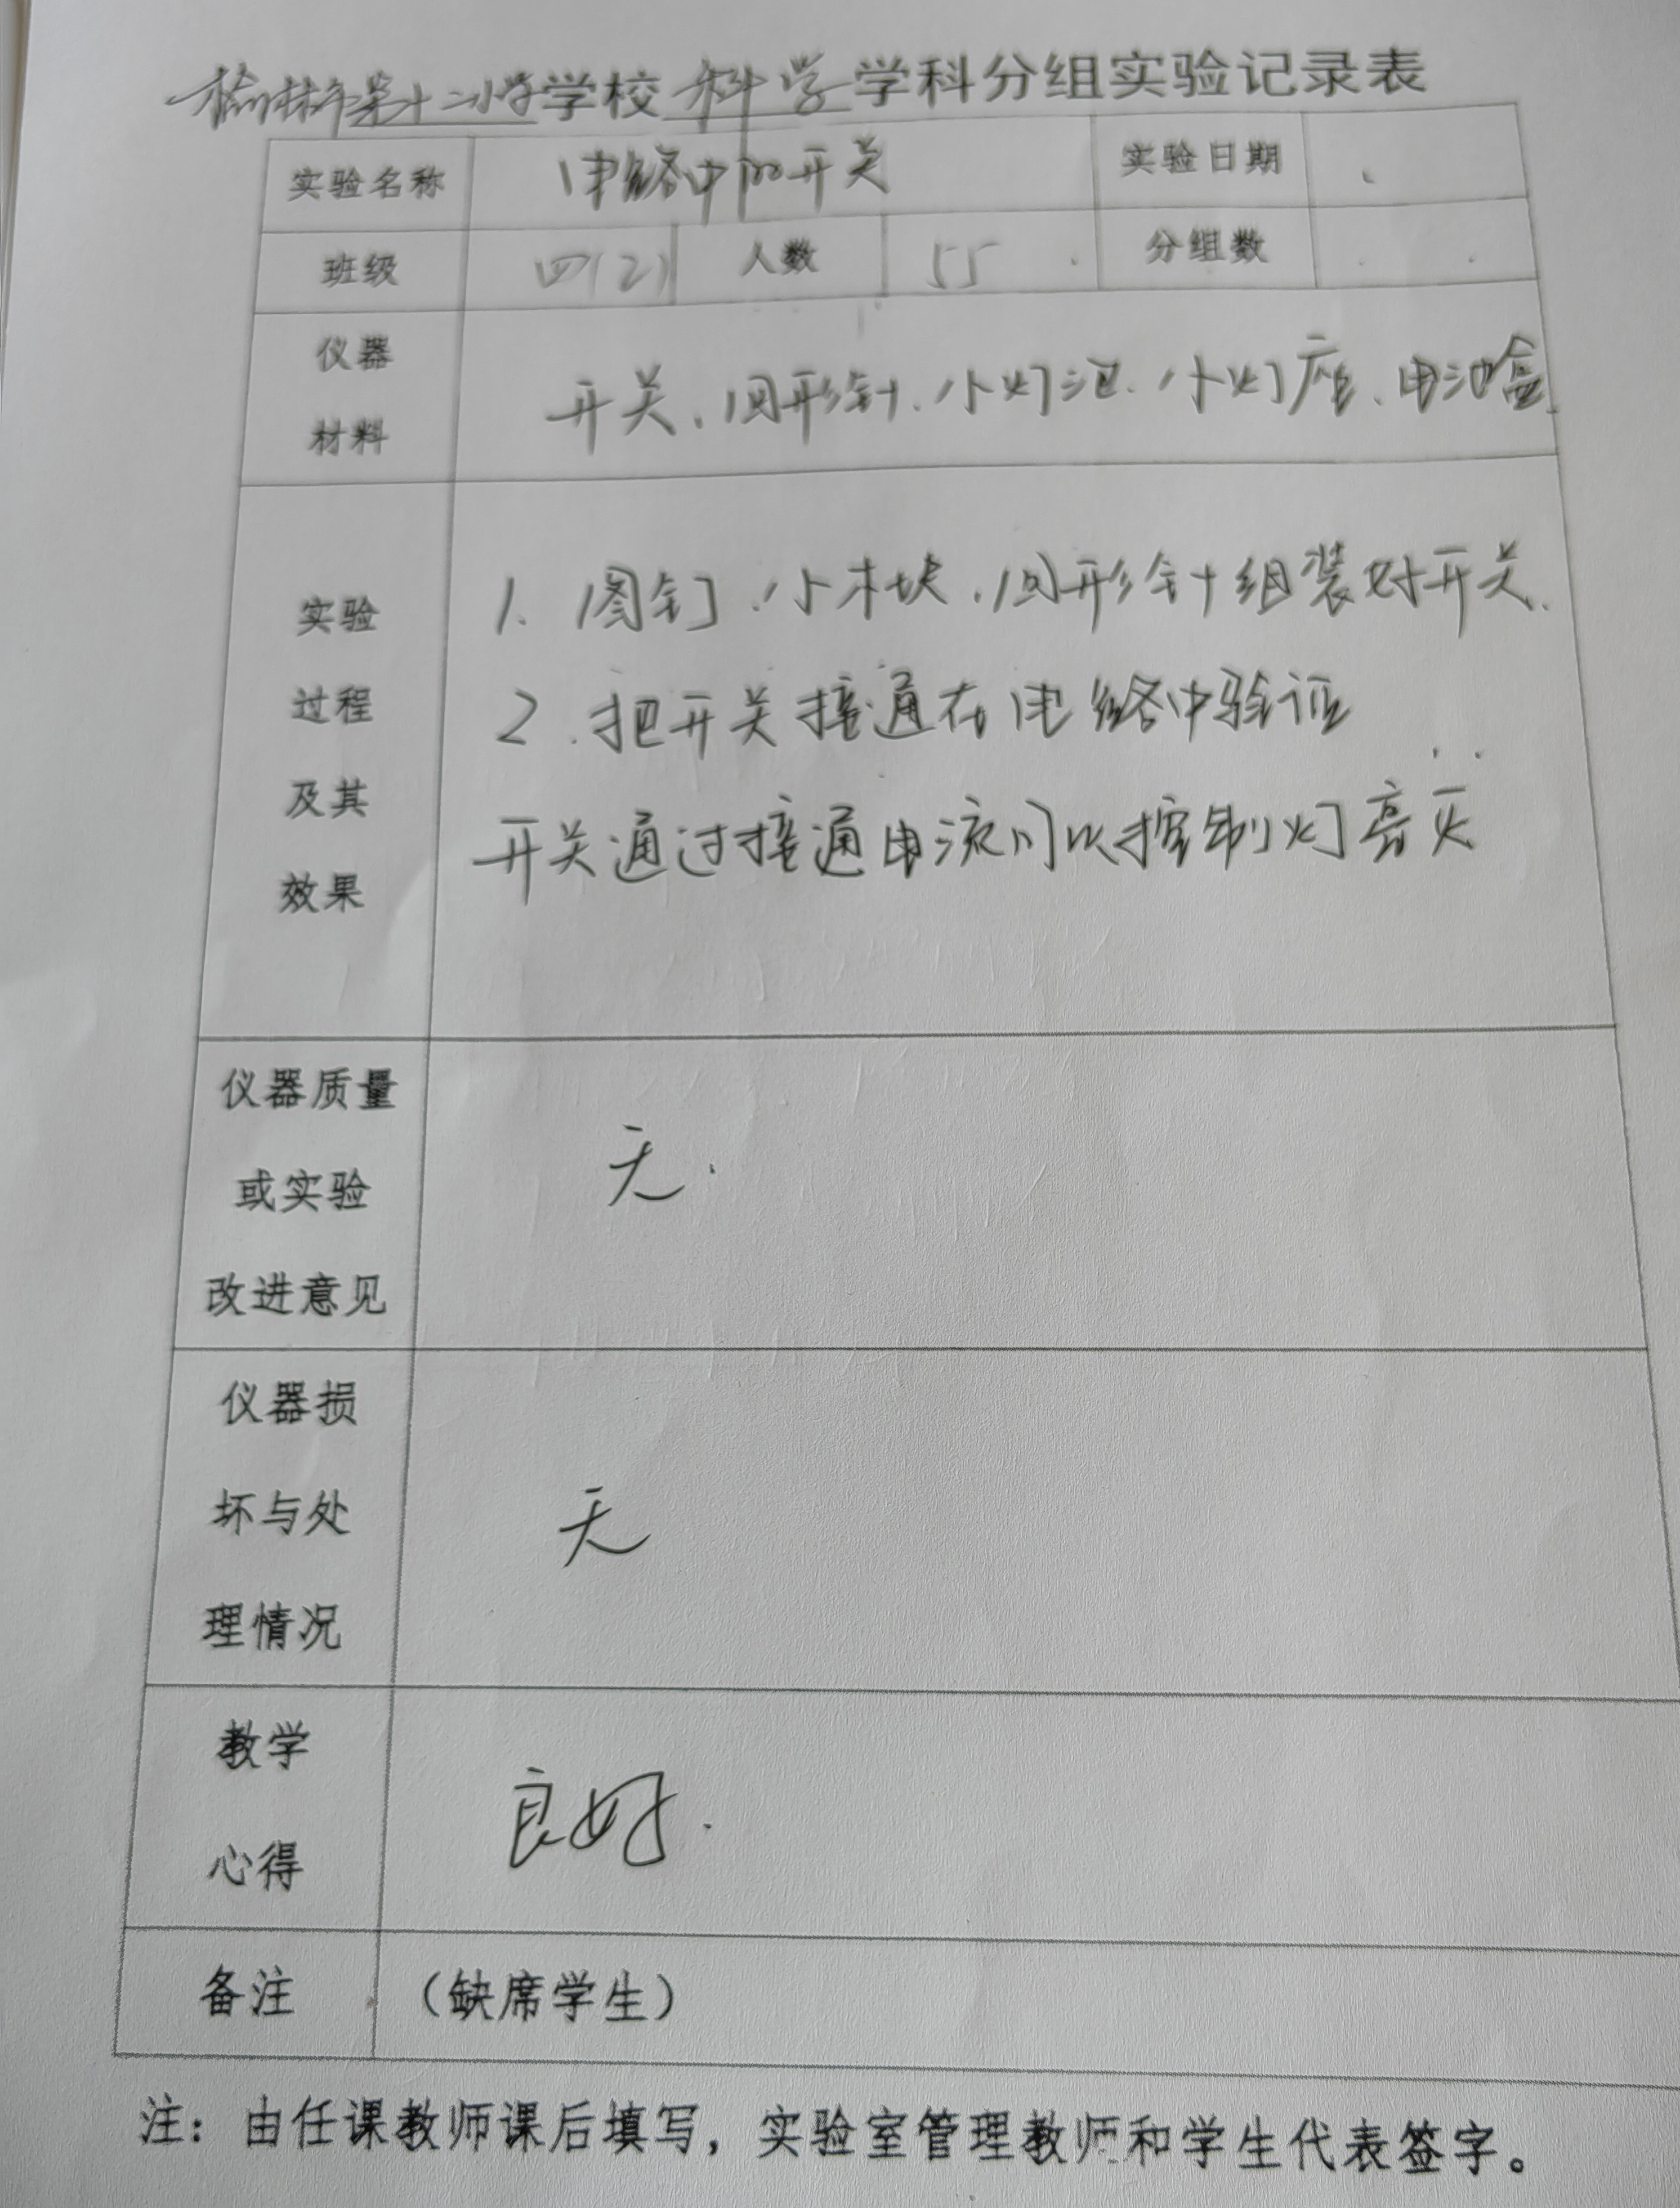 榆林市第十二小学学校 科学 学科分组实验记录表
实验名称 电路中的开关 实验日期
班级 四(2) 人数 55 分组数
仪器
材料
开关、回形针、小灯泡、小灯座、电池盒
实验
过程
及其
效果
1、图钉、小木块、回形针组装好开关、
2、把开关接通在电路中验证
开关通过接通电流可以控制灯亮灭
仪器质量
或实验
改进意见
无.
仪器损
坏与处
理情况
无
教学
心得
良好.
备注 （缺席学生）
注：由任课教师课后填写，实验室管理教师和学生代表签字。